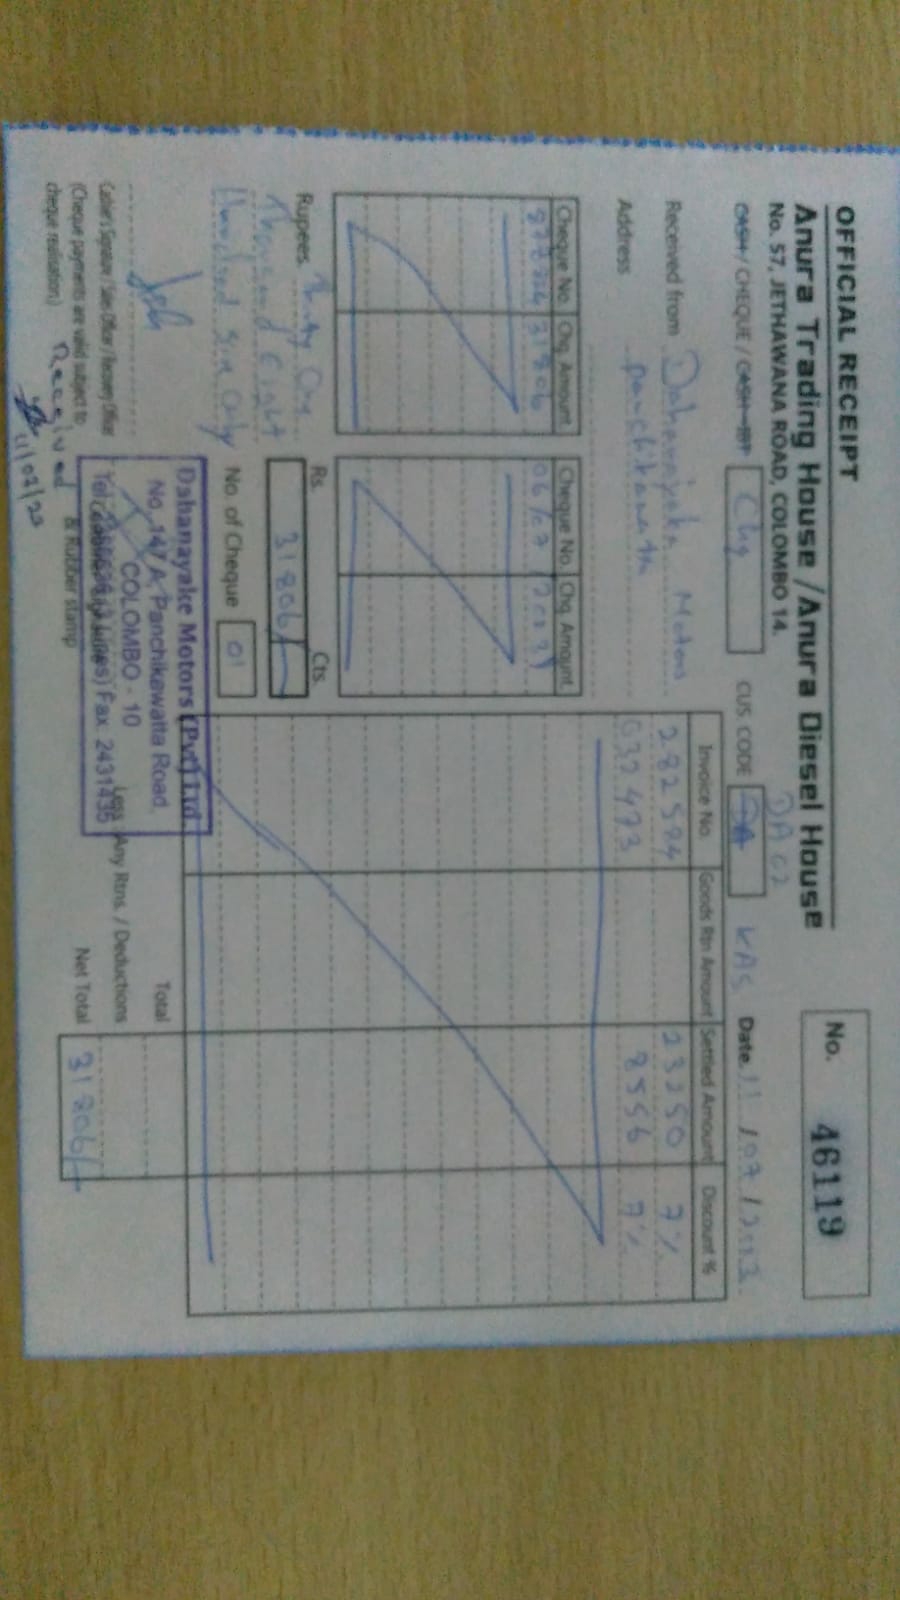 OFFICIAL RECEIPT
No. 46119
Anura Trading House / Anura Diesel House
No. 57, JETHAWANA ROAD, COLOMBO 14.
DA 02
CASH / CHEQUE / CASH Chq CUS. CODE DA KAS Date. 11 / 07 / 2023
Received from Dahanayaka Motors
Address panchikawatta
Cheque No. Chq. Amount Cheque No. Chq. Amount
31806 06/07/2023
Invoice No. Goods Rtn Amount Settled Amount Discount %
282594 23250 7%
032473 8556 7%
Rupees Thirty One
Thousand Eight
Hundred Six Only
Rs. Cts.
31806/-
No. of Cheque 01
Dahanayake Motors (Pvt) Ltd.
No. 147 A, Panchikawatta Road,
COLOMBO - 10
Fax: 2431435
Total
Less Any Rtns. / Deductions
Net Total 31806/-
Cashier's Signature / Sales Officer / Recovery Officer
(Cheque payments are valid subject to
cheque realisation)
& Rubber stamp
Received
11/07/23